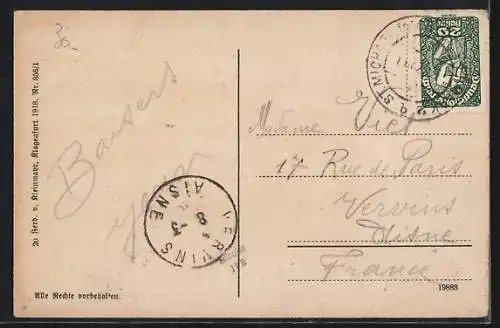 30.
Baisers
Madame Viet
17 Rue de Paris
Vervins
Aisne
France
VERVINS
AISNE
ST MICHAEL
20
20 Ferd. v. Kleinmayr, Klagenfurt 1918. Nr. 856/1
Alle Rechte vorbehalten.
19888